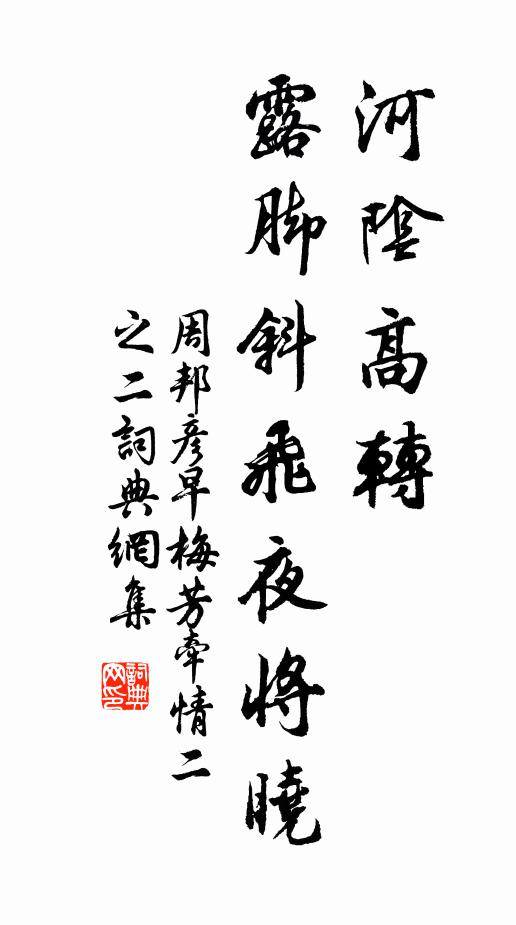 河陰高轉
露脚斜飛夜將曉
周邦彥早梅芳牽情二
之二詞典網集
詞典網印